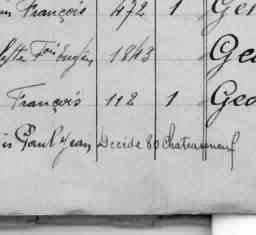 François 472 1
1843
François 112 1 Geo
Paul Jean Décidé 80 Chateauneuf